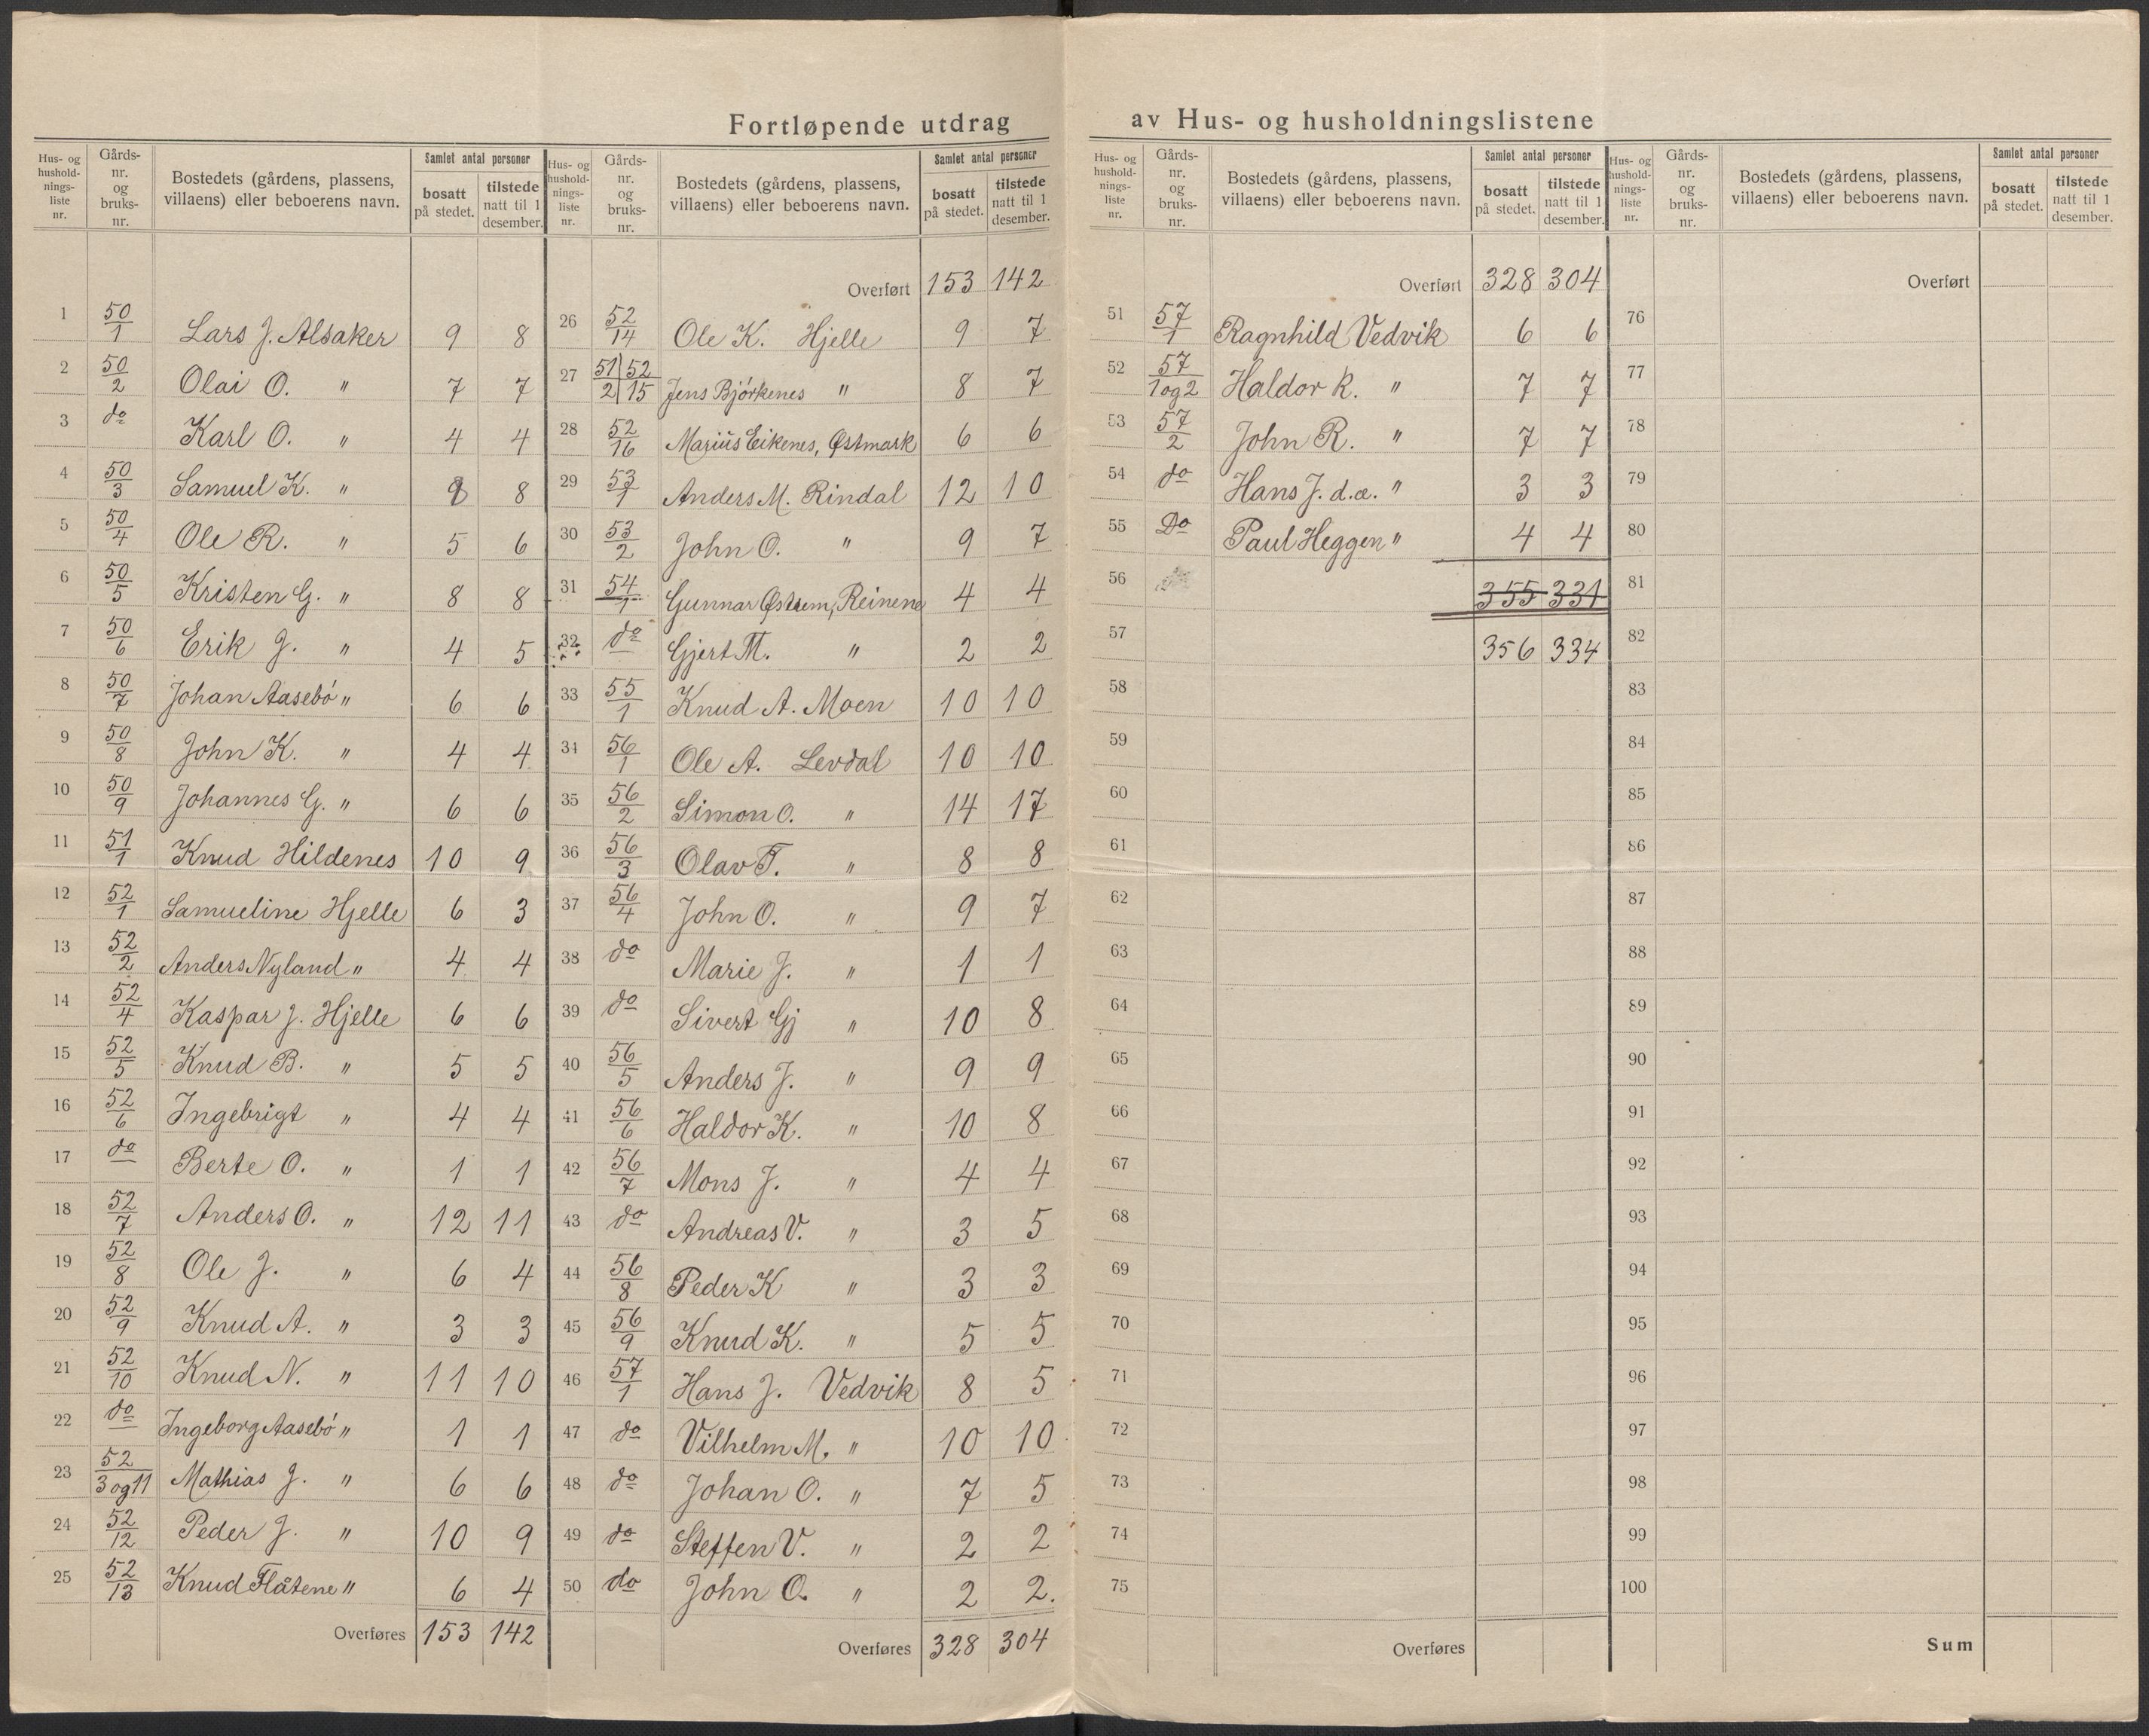 Fortløpende utdrag av Hus- og husholdningslistene
Hus- og hushold- nings- liste nr. | Gårds- nr. og bruks- nr. | Bostedets (gårdens, plassens, villaens) eller beboerens navn. | Samlet antal personer | bosatt på stedet. | tilstede natt til 1 desember.
1 50/1 Lars J. Alsaker 9 8
2 50/2 Olai O. " 7 7
3 do Karl O. " 4 4
4 50/3 Samuel K. " 8 8
5 50/4 Ole R. " 5 6
6 50/5 Kristen G. " 8 8
7 50/6 Erik J. " 4 5
8 50/7 Johan Aasebö " 6 6
9 50/8 John K. " 4 4
10 50/9 Johannes G. " 6 6
11 51/1 Knud Hildenes 10 9
12 52/1 Samueline Hjelle 6 3
13 52/2 Anders Nyland " 4 4
14 52/4 Kaspar J. Hjelle 6 6
15 52/5 Knud B. " 5 5
16 52/6 Ingebrigt " 4 4
17 do Berte O. " 1 1
18 52/7 Anders O. " 12 11
19 52/8 Ole J. " 6 4
20 52/9 Knud A. " 3 3
21 52/10 Knud N. " 11 10
22 do Ingeborg Aasebö " 1 1
23 52/3 og 11 Mathias J. " 6 6
24 52/12 Peder J. " 10 9
25 52/13 Knud Flåtene " 6 4
Overføres 153 142
Hus- og hushold- nings- liste nr. | Gårds- nr. og bruks- nr. | Bostedets (gårdens, plassens, villaens) eller beboerens navn. | Samlet antal personer | bosatt på stedet. | tilstede natt til 1 desember.
Overført 153 142
26 52/14 Ole K. Hjelle 9 7
27 51/2 52/15 Jens Björkenes " 8 7
28 52/16 Marius Eikenes, Østmark 6 6
29 53/1 Anders M. Rindal 12 10
30 53/2 John O. " 9 7
31 54/1 Gunnar Østrem, Reinene 4 4
32 do Gjert M. " 2 2
33 55/1 Knud A. Moen 10 10
34 56/1 Ole A. Levdal 10 10
35 56/2 Simon O. " 14 17
36 56/3 Olav T. " 8 8
37 56/4 John O. " 9 7
38 do Marie J. " 1 1
39 do Sivert Gj " 10 8
40 56/5 Anders J. " 9 9
41 56/6 Haldor K. " 10 8
42 56/7 Mons J. " 4 4
43 do Andreas V. " 3 5
44 56/8 Peder K " 3 3
45 56/9 Knud K. " 5 5
46 57/1 Hans J. Vedvik 8 5
47 do Vilhelm M. " 10 10
48 do Johan O. " 7 5
49 do Steffen V. " 2 2
50 do John O. " 2 2.
Overføres 328 304
Hus- og hushold- nings- liste nr. | Gårds- nr. og bruks- nr. | Bostedets (gårdens, plassens, villaens) eller beboerens navn. | Samlet antal personer | bosatt på stedet. | tilstede natt til 1 desember.
Overført 328 304
51 57/1 Ragnhild Vedvik 6 6
52 57/1 og 2 Haldor R. " 7 7
53 57/2 John R. " 7 7
54 do Hans J. d.æ. " 3 3
55 Do Paul Heggen " 4 4
56 355 331
57 356 334
58
59
60
61
62
63
64
65
66
67
68
69
70
71
72
73
74
75
Overføres
Hus- og hushold- nings- liste nr. | Gårds- nr. og bruks- nr. | Bostedets (gårdens, plassens, villaens) eller beboerens navn. | Samlet antal personer | bosatt på stedet. | tilstede natt til 1 desember.
Overført
76
77
78
79
80
81
82
83
84
85
86
87
88
89
90
91
92
93
94
95
96
97
98
99
100
Sum